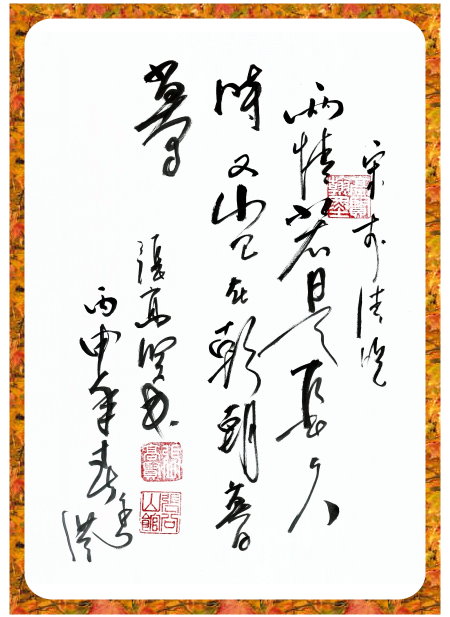 宋
兩情若是長久
時又豈在朝朝暮
暮
張高賢書
丙申年春香港